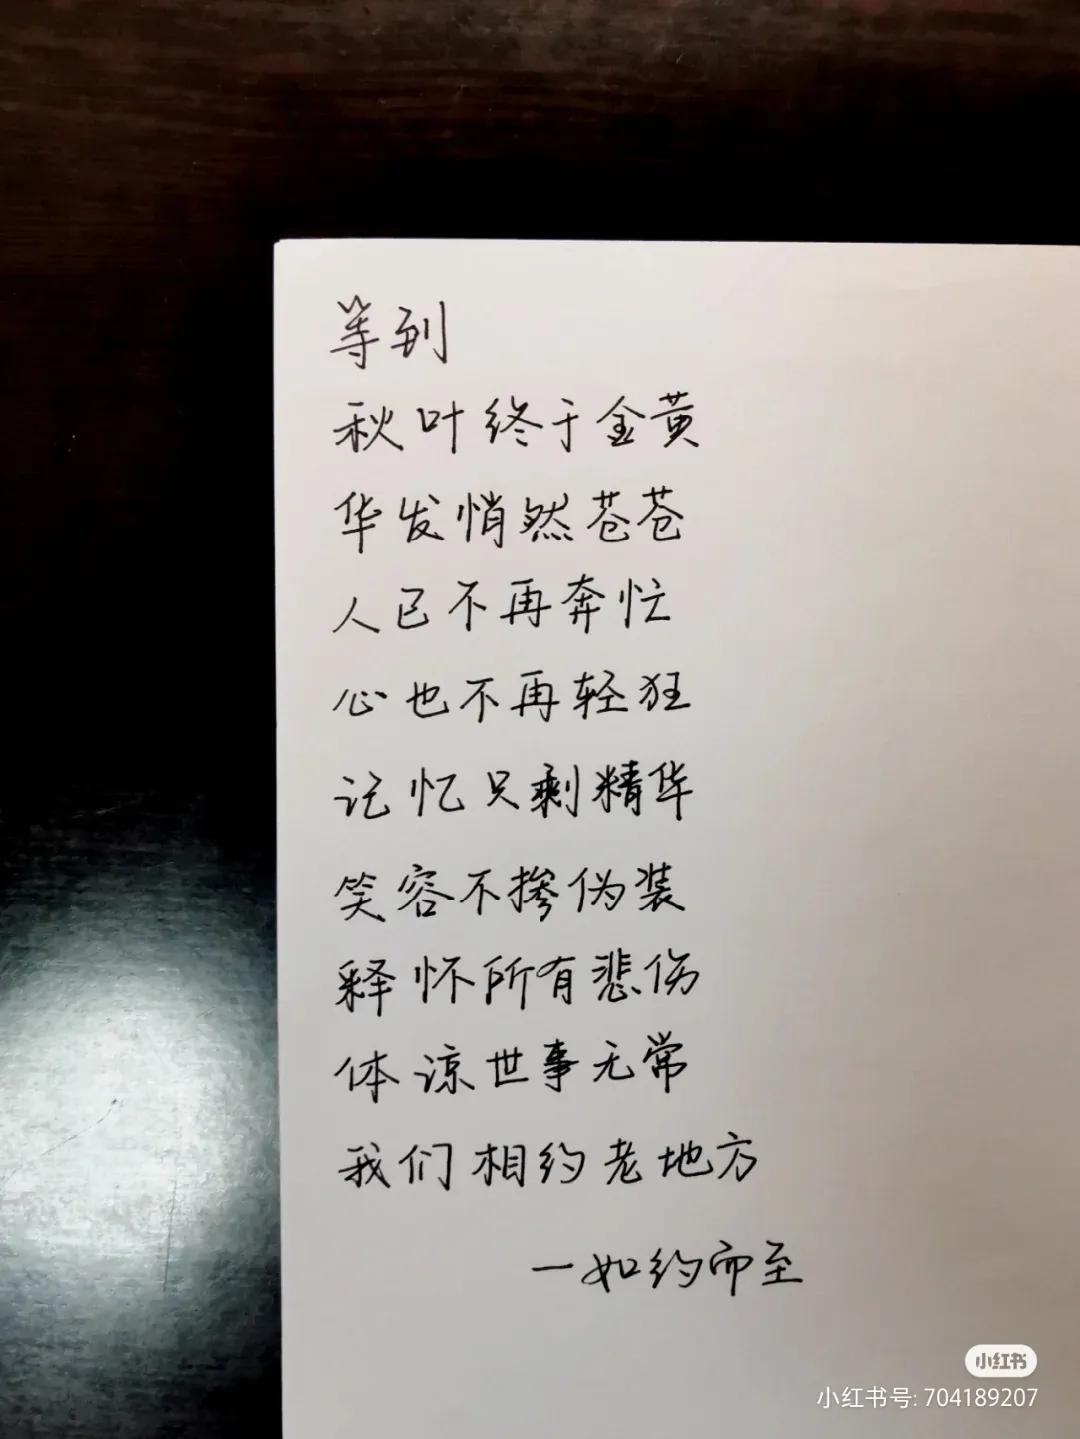 等到
秋叶终于金黄
华发悄然苍苍
人已不再奔忙
心也不再轻狂
记忆只剩精华
笑容不掺伪装
释怀所有悲伤
体谅世事无常
我们相约老地方
一如约而至
小红书
小红书号: 704189207